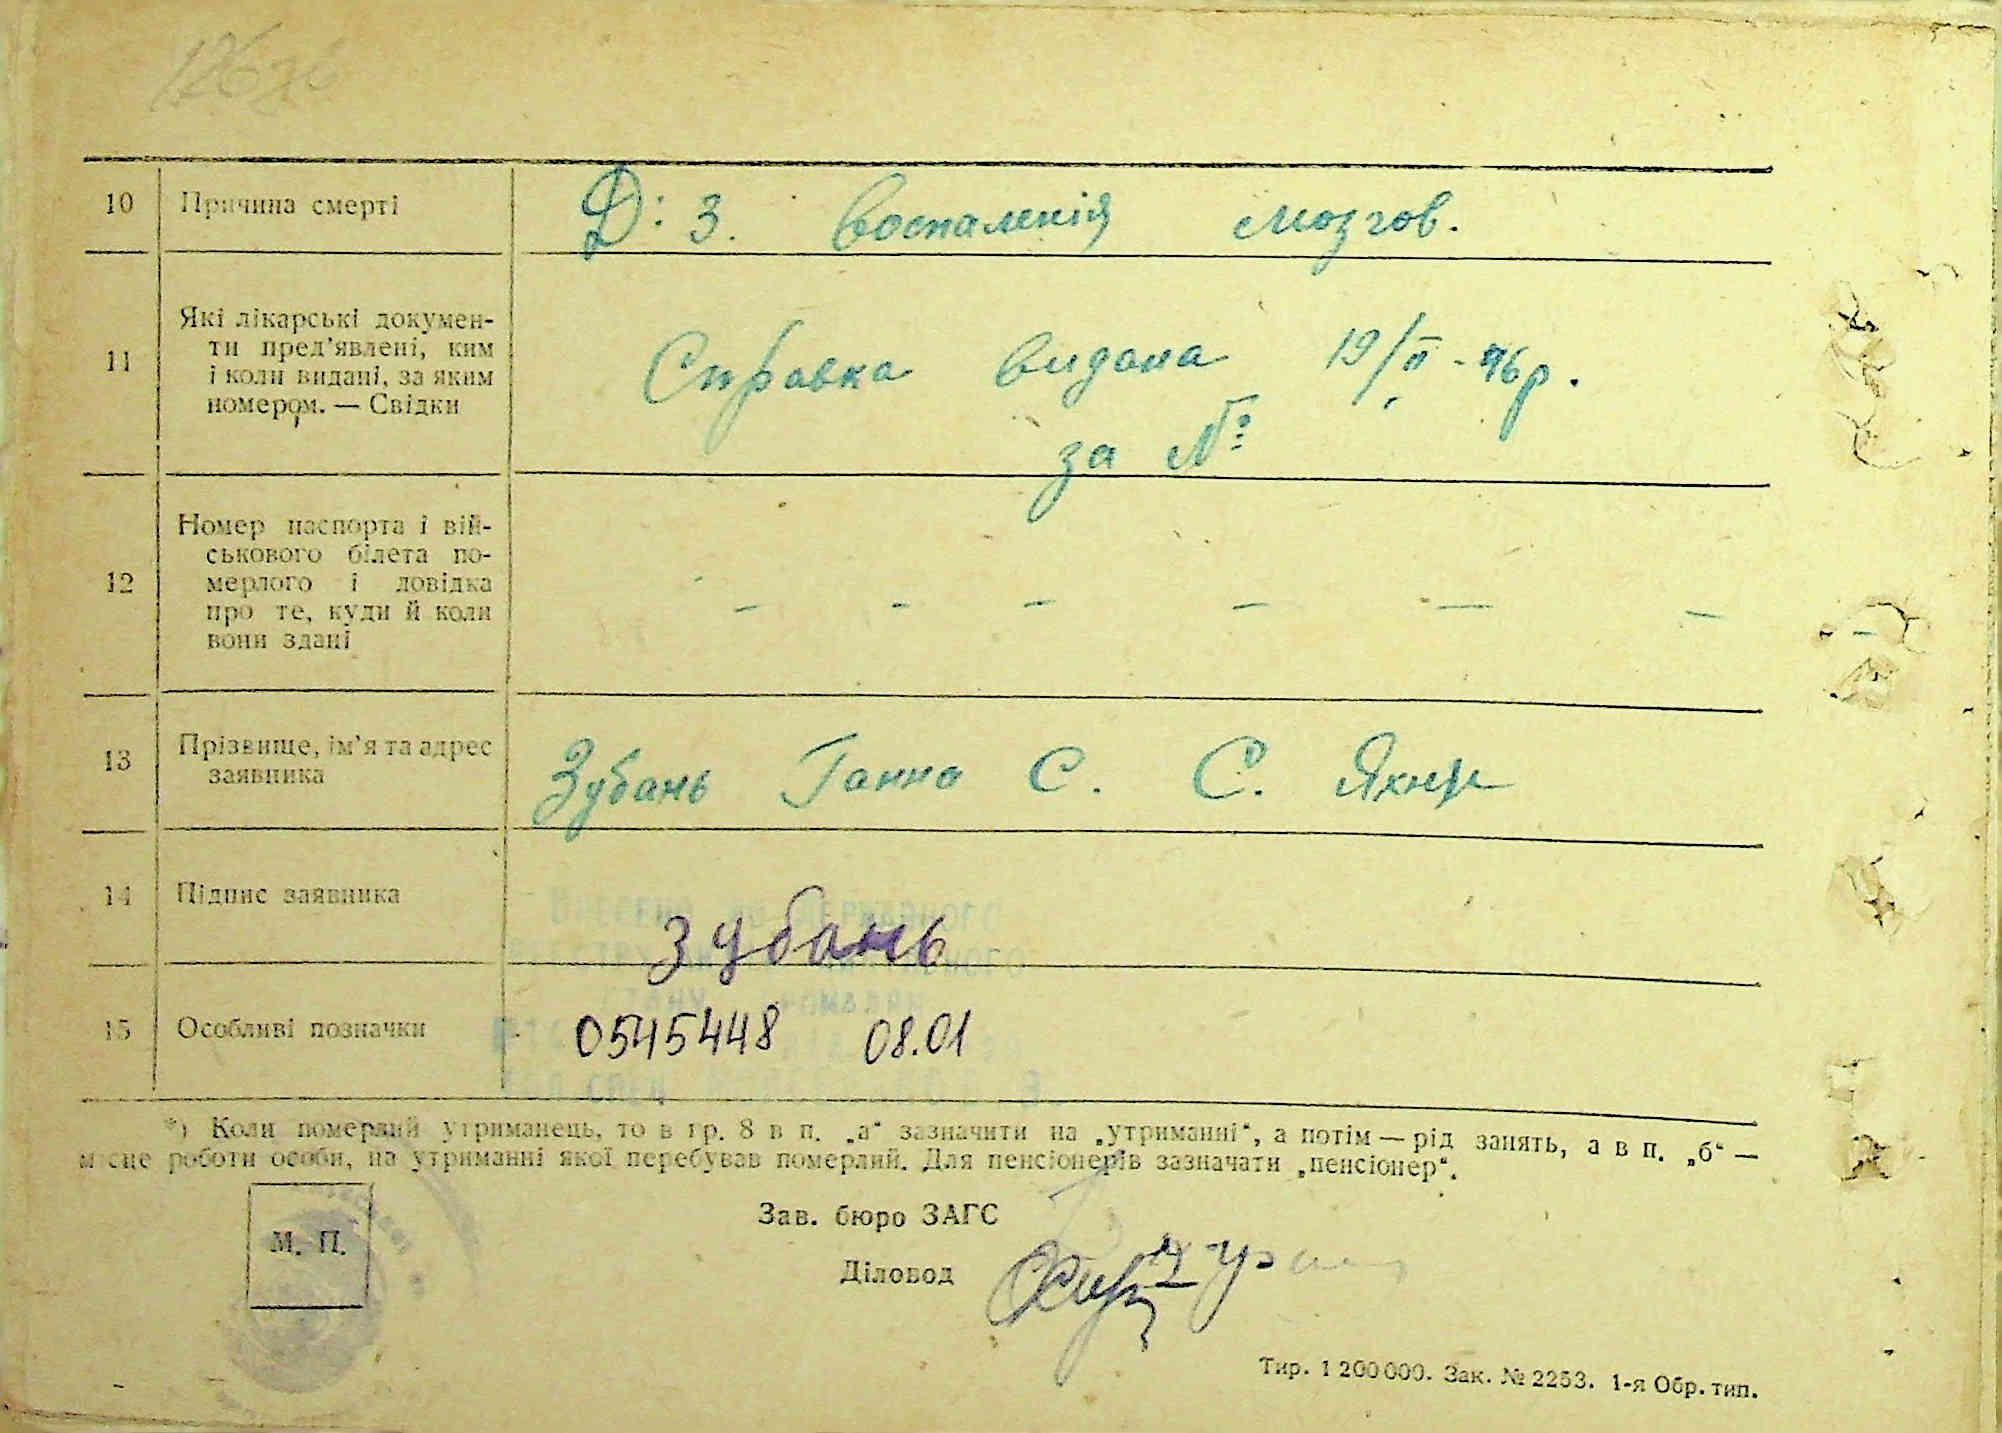 10 Причина смерті Д: З. Воспаленія мозгов.
Які лікарські докумен-
ти пред'явлені, ким
11 і коли видані, за яким Справка видана 19/II - 46 р.
номером. — Свідки за №
Номер паспорта і вій-
ськового білета по-
12 мерлого і довідка
про те, куди й коли — — — — — —
вони здані
13 Прізвище, ім'я та адрес Зубань Ганна С. С.
заявника
14 Підпис заявника Зубань
15 Особливі позначки 0545448 08.01
*) Коли померлий утриманець, то в гр. 8 в п. „а“ зазначити на „утриманні“, а потім — рід занять, а в п. „б“ —
місце роботи особи, на утриманні якої перебував померлий. Для пенсіонерів зазначати „пенсіонер“.
М. П.
Зав. бюро ЗАГС
Діловод
Тир. 1 200 000. Зак. № 2253. 1-я Обр. тип.